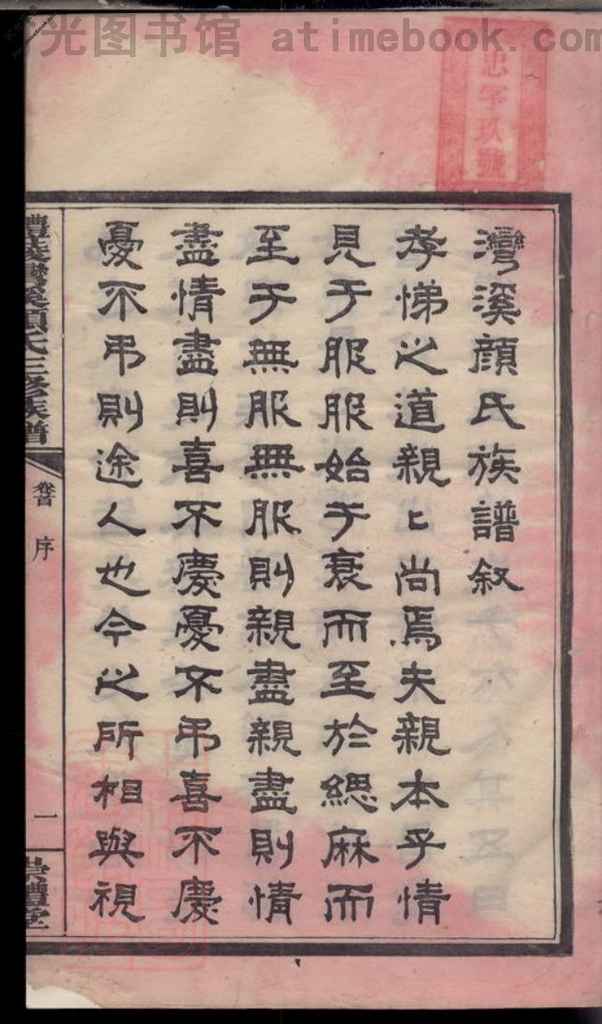 光图书馆 atimebook.com
忠字玖號
灣溪顏氏族譜叙
孝悌之道親〻尚焉夫親本乎情
見于服服始于衰而至於緦麻而
至于無服無服則親盡親盡則情
盡情盡則喜不慶憂不弔喜不慶
憂不弔則途人也今之所相與視
醴陵灣溪顏氏三修族譜
卷首 序
一